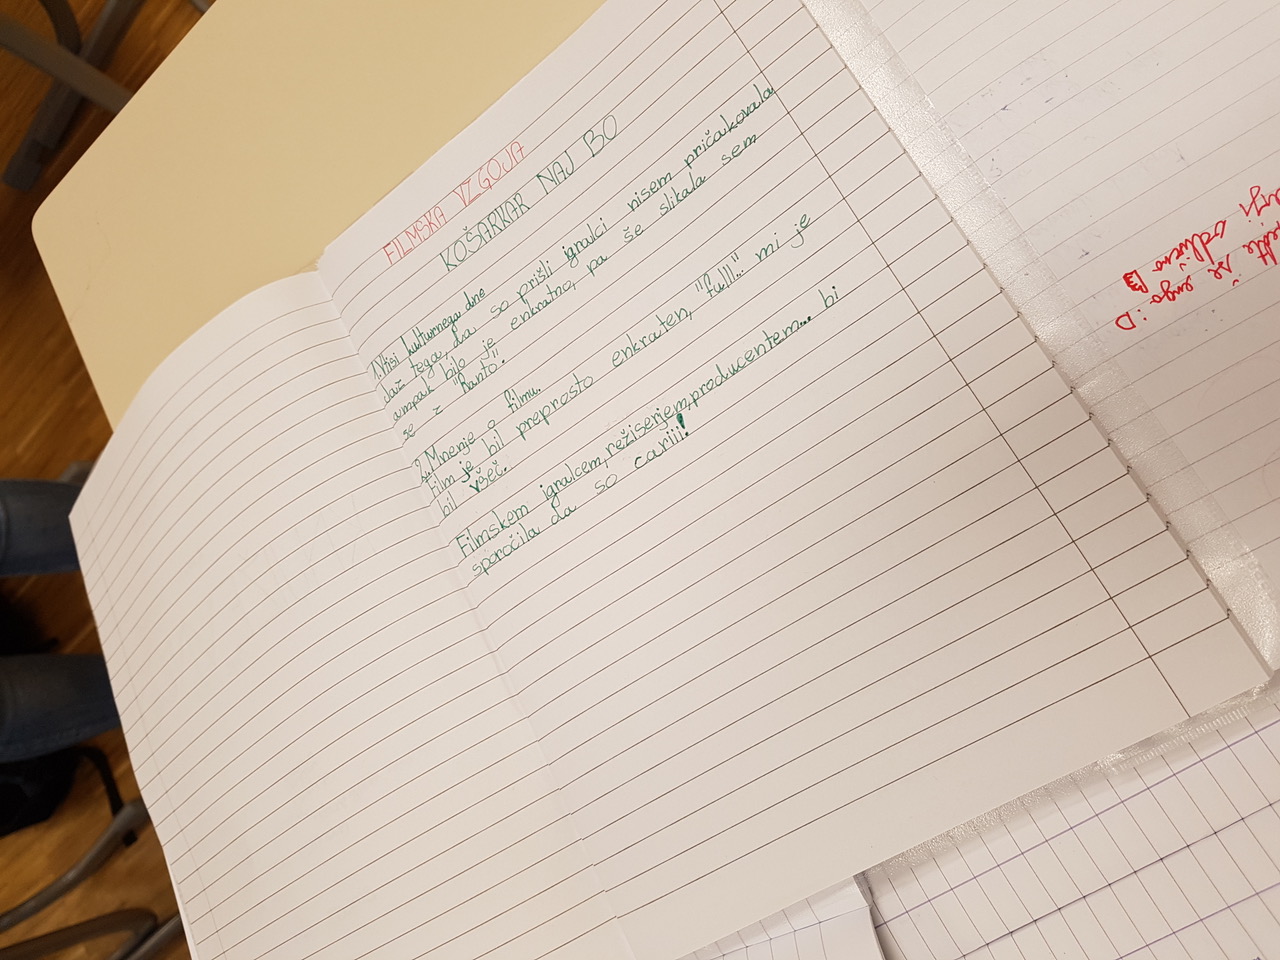 FILMSKA VZGOJA
KOŠARKAR NAJ BO
1. Vtisi kulturnega dne
daž tega, da so prišli igralci nisem pričakovala
ampak bilo je enkratno, pa še slikala sem
se z "Ranto".
2. Mnenje o filmu.
Film je bil preprosto enkraten, "fulll..." mi je
bil všeč.
Filmskem igralcem, režiserjem, producentem... bi
sporočila da so cariii!
še enga :D
odlično